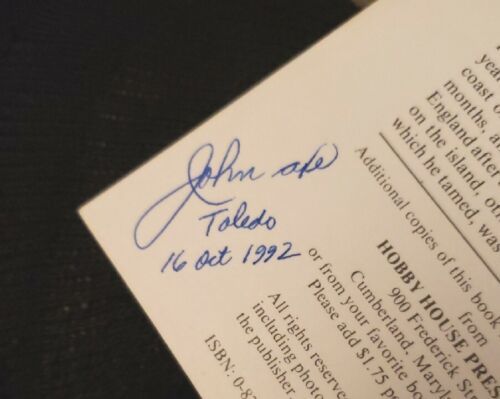 John axe
Toledo
16 Oct 1992
year
coast o
months, a
England after
on the island, o
which he tamed, was
Additional copies of this book
from
HOBBY HOUSE PRES
900 Frederick Str
Cumberland, Maryl
or from your favorite bo
Please add $1.75 p
All rights reserve
including photo
the publisher
ISBN: 0-8